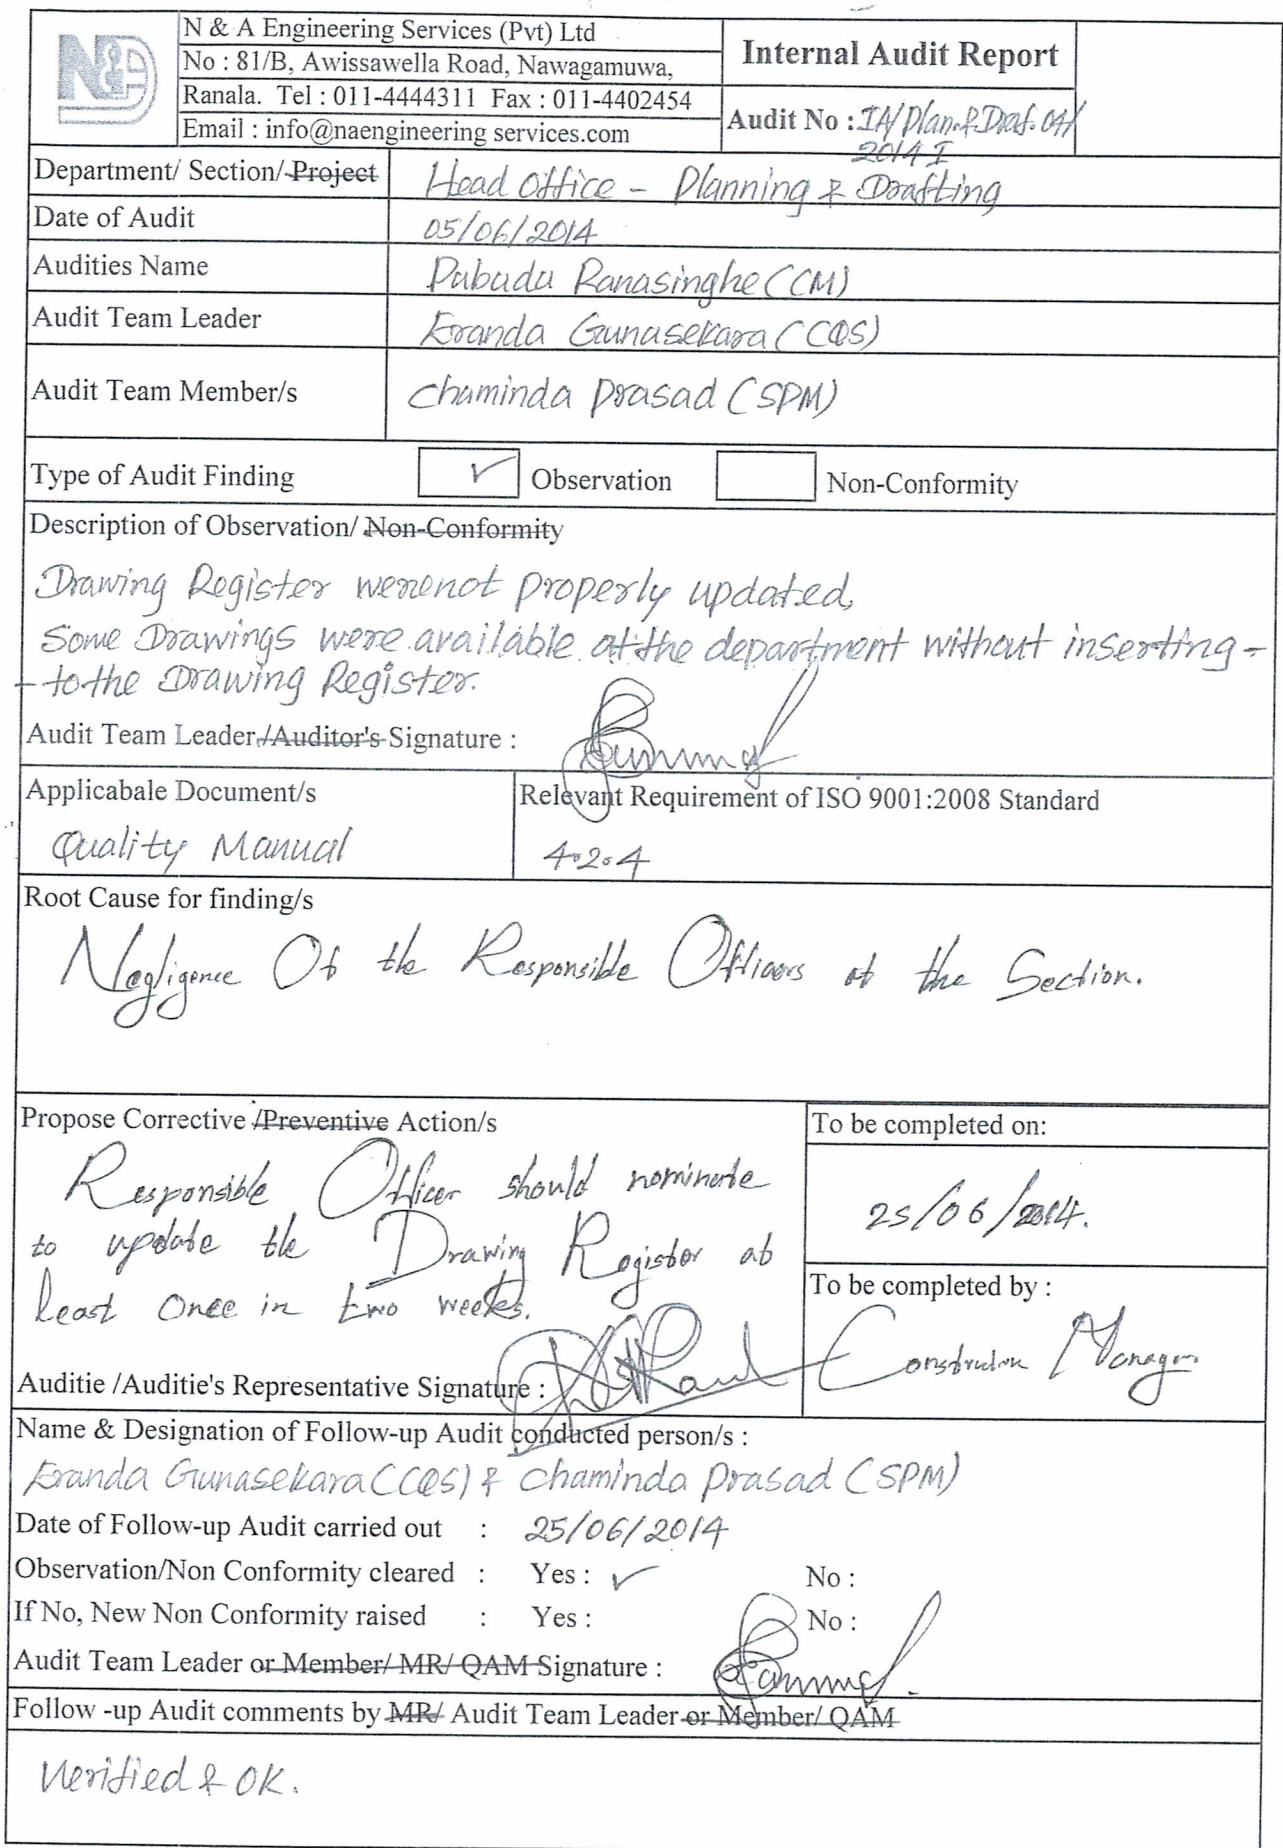 N&A
N & A Engineering Services (Pvt) Ltd
No : 81/B, Awissawella Road, Nawagamuwa,
Ranala. Tel : 011-4444311 Fax : 011-4402454
Email : info@naengineering services.com
Internal Audit Report
Audit No : IA/Plan.&Draf. 04/
2014 I
Department/ Section/ Project
Head Office - Planning & Drafting
Date of Audit
05/06/2014
Audities Name
Pubudu Ranasinghe (CM)
Audit Team Leader
Eranda Gunasekara (CQS)
Audit Team Member/s
Chaminda Prasad (SPM)
Type of Audit Finding ✓ Observation Non-Conformity
Description of Observation/ Non-Conformity
Drawing Register were not properly updated,
Some Drawings were available at the department without inserting -
- to the Drawing Register.
Audit Team Leader /Auditor's Signature :
Applicabale Document/s
Quality Manual
Relevant Requirement of ISO 9001:2008 Standard
4.2.4
Root Cause for finding/s
Negligence Of the Responsible Officers at the Section.
Propose Corrective /Preventive Action/s
Responsible Officer should nominate
to update the Drawing Register at
least Once in two weeks.
Auditie /Auditie's Representative Signature :
To be completed on:
25/06/2014.
To be completed by :
Construction Manager.
Name & Designation of Follow-up Audit conducted person/s :
Eranda Gunasekara (CQS) & Chaminda Prasad (SPM)
Date of Follow-up Audit carried out : 25/06/2014
Observation/Non Conformity cleared : Yes : ✓ No :
If No, New Non Conformity raised : Yes : No :
Audit Team Leader or Member/ MR/ QAM Signature :
Follow -up Audit comments by MR/ Audit Team Leader or Member/ QAM
Verified & OK.